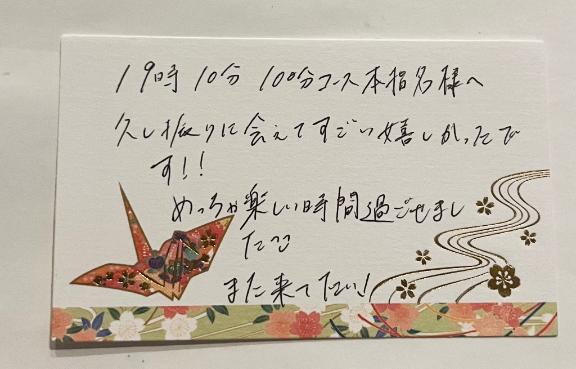 19時10分 100分コース本指名様へ
久し振りに会えてすごい嬉しかったで
す!!
めっちゃ楽しい時間過ごせまし
た
また来てたい!